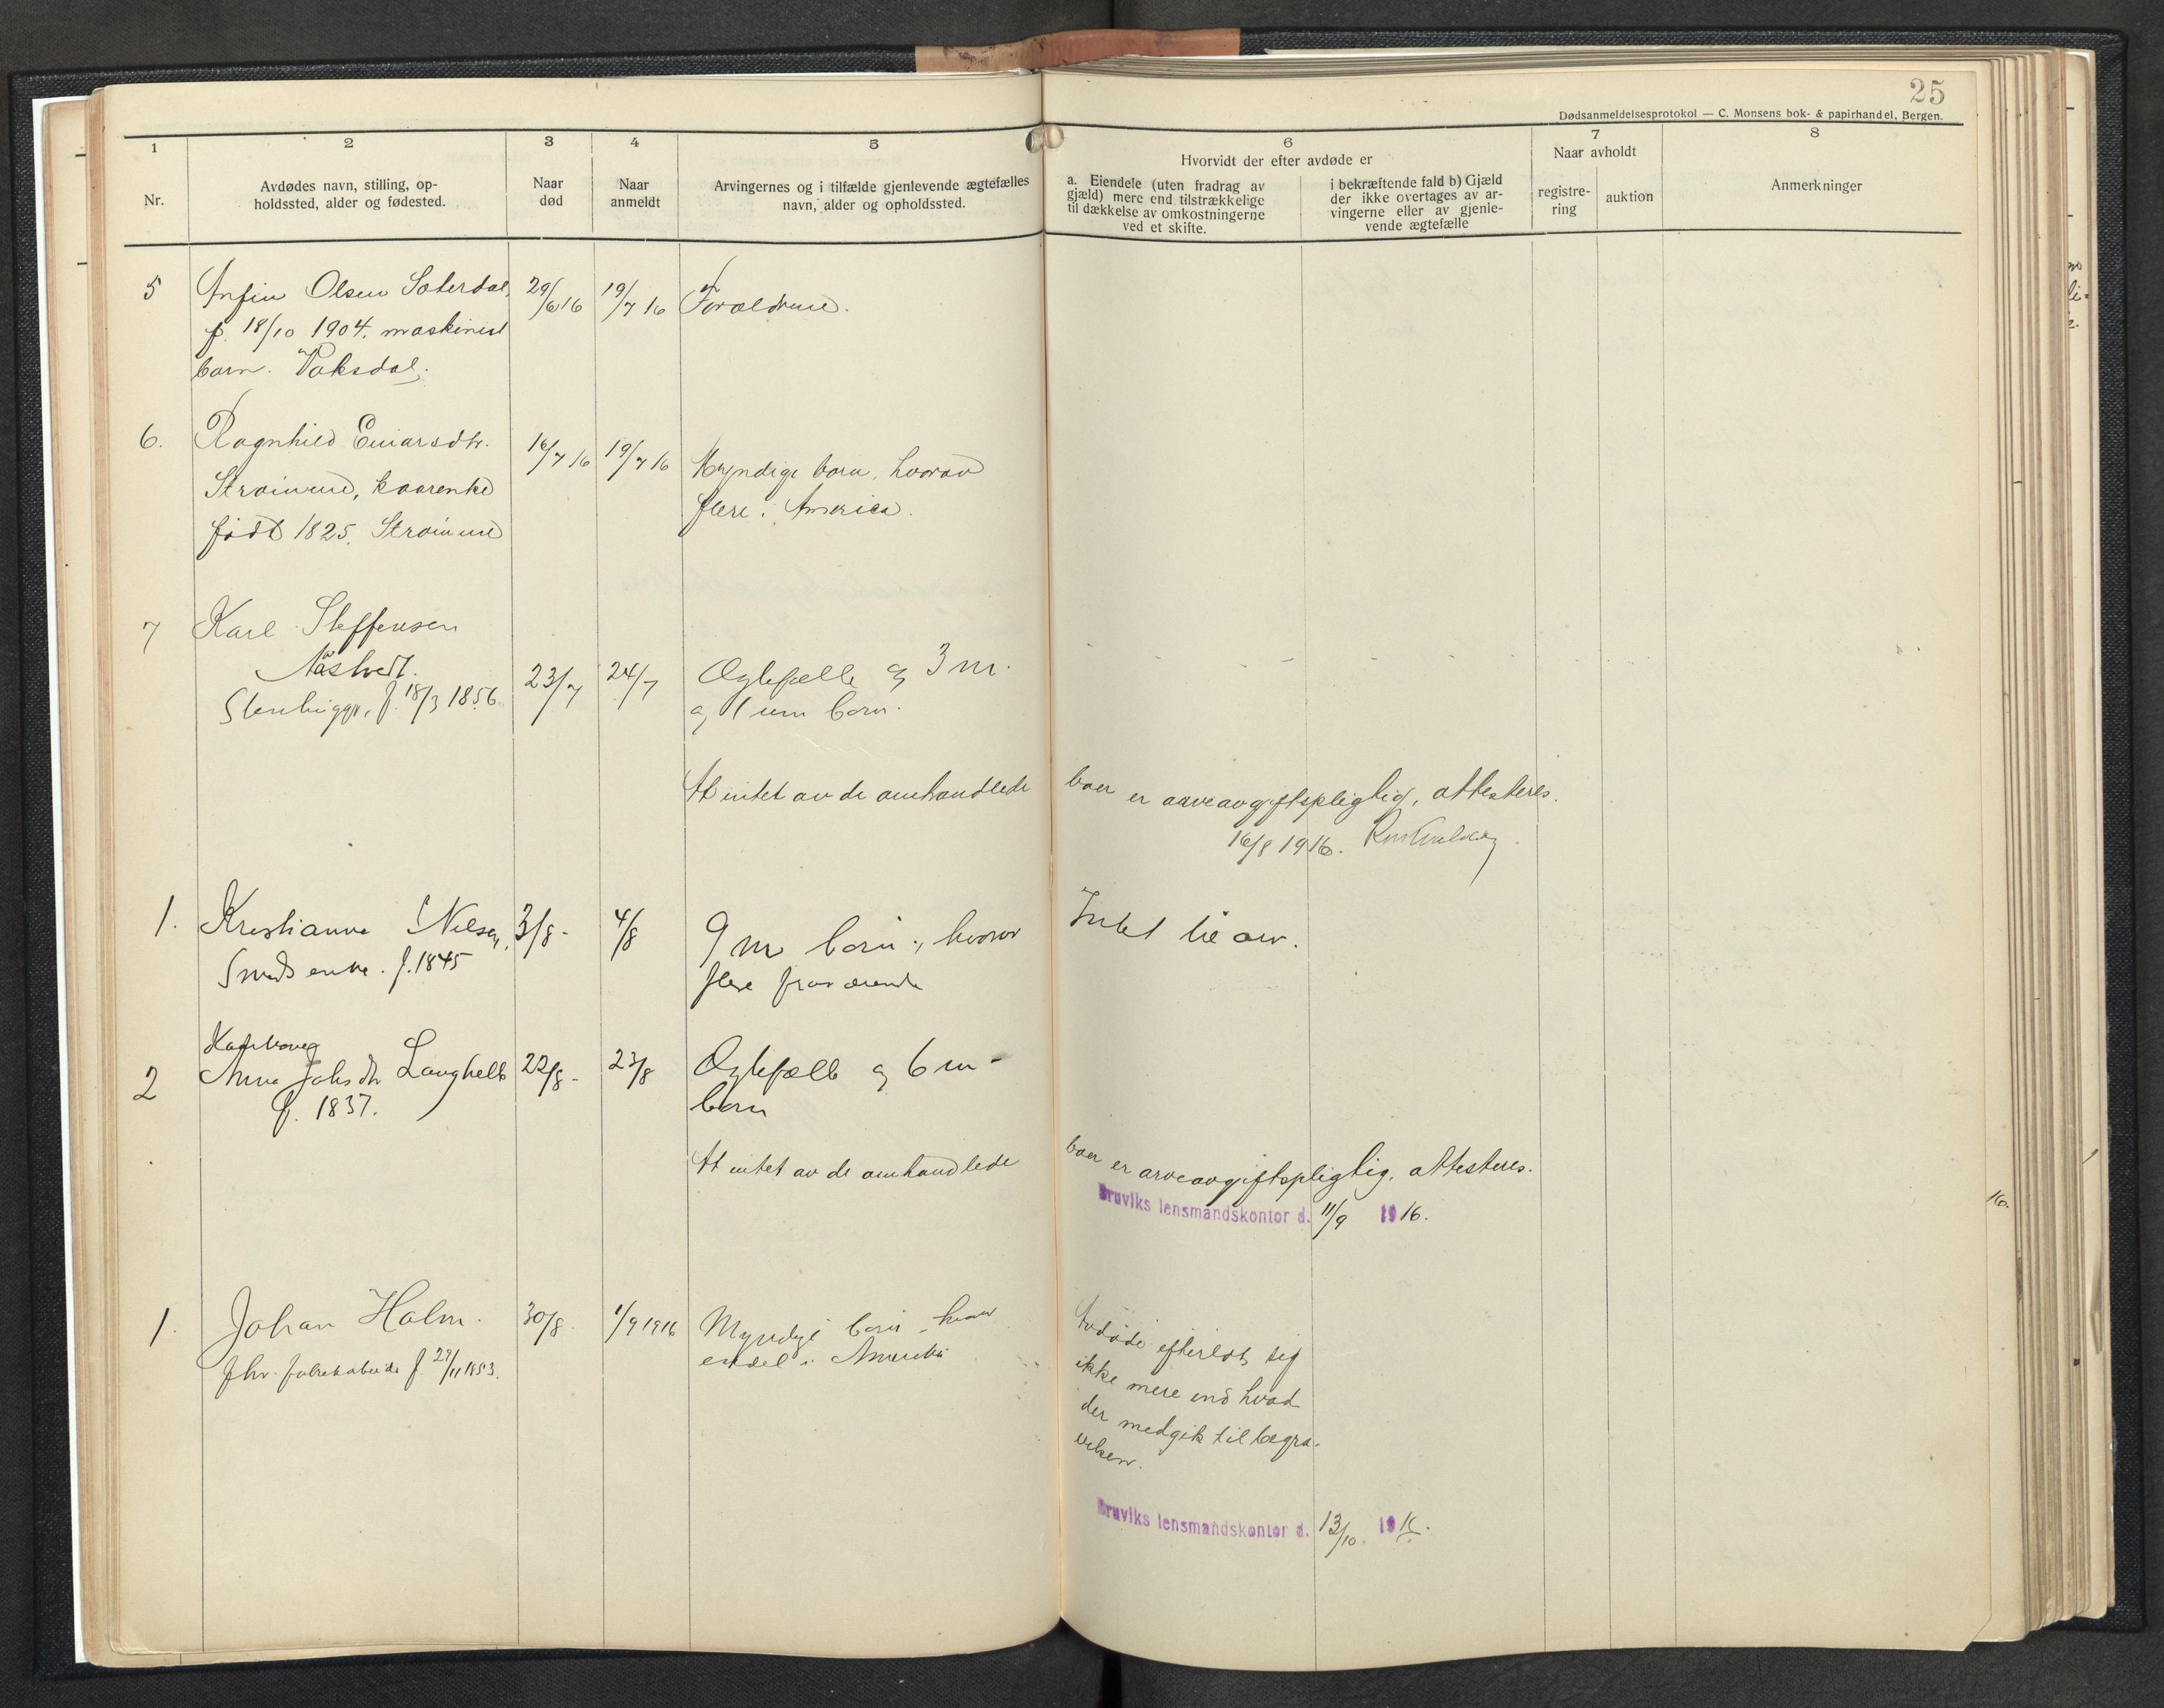 25
Dødsanmeldelsesprotokol — C. Monsens bok- & papirhandel, Bergen.
1 2 3 4 5 6 7 8
Nr.
Avdødes navn, stilling, op-
holdssted, alder og fødested.
Naar
død
Naar
anmeldt
Arvingernes og i tilfælde gjenlevende ægtefælles
navn, alder og opholdssted.
Hvorvidt der efter avdøde er
a. Eiendele (uten fradrag av
gjæld) mere end tilstrækkelige
til dækkelse av omkostningerne
ved et skifte.
i bekræftende fald b) Gjæld
der ikke overtages av ar-
vingerne eller av gjenle-
vende ægtefælle
Naar avholdt
registre-
ring
auktion
Anmerkninger
5 Anfin Olsen Sæterdal, 29/6 16 19/7 16 Forældrene.
f. 18/10 1904. maskinist
barn. Vaksdal.
6. Ragnhild Einarsdtr. 16/7 16 19/7 16
Strømme, kaarenke
født 1825. Strømme
Myndige børn, hvorav
flere i America.
7 Karl Steffensen
Aastvedt.
f. 18/3 1856 23/7 24/7
Ægtefælle og 3 m.
og 1 um børn.
At intet av de omhandlede boer er arveavgiftspligtig, attesteres.
16/8 1916.
1. Kristianne Nilsen, 3/8 - 4/8 9 m børn, hvorav Intet til arv.
Smeds enke. f. 1845
flere fraværende
2 Kaarkone
Anna Johsdtr Langhelle 22/8 - 23/8 Ægtefælle og 6 m -
f. 1837.
børn
At intet av de omhandlede boer er arveavgiftspligtig, attesteres.
Bruviks lensmandskontor d. 11/9 1916.
1. Johan Holm. 30/8. 1/9 1916 Myndige børn - hvorav
fhv. fabrikarbeide f. 29/11 1853.
endel i Amerika
Avdøde efterlot sig
ikke mere end hvad
der medgik til begra-
velsen.
Bruviks lensmandskontor d. 13/10. 1916.
16.